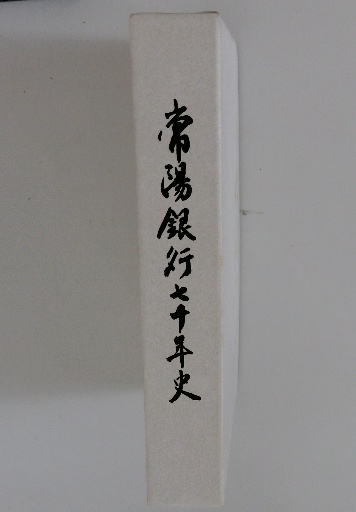 常陽銀行七十年史